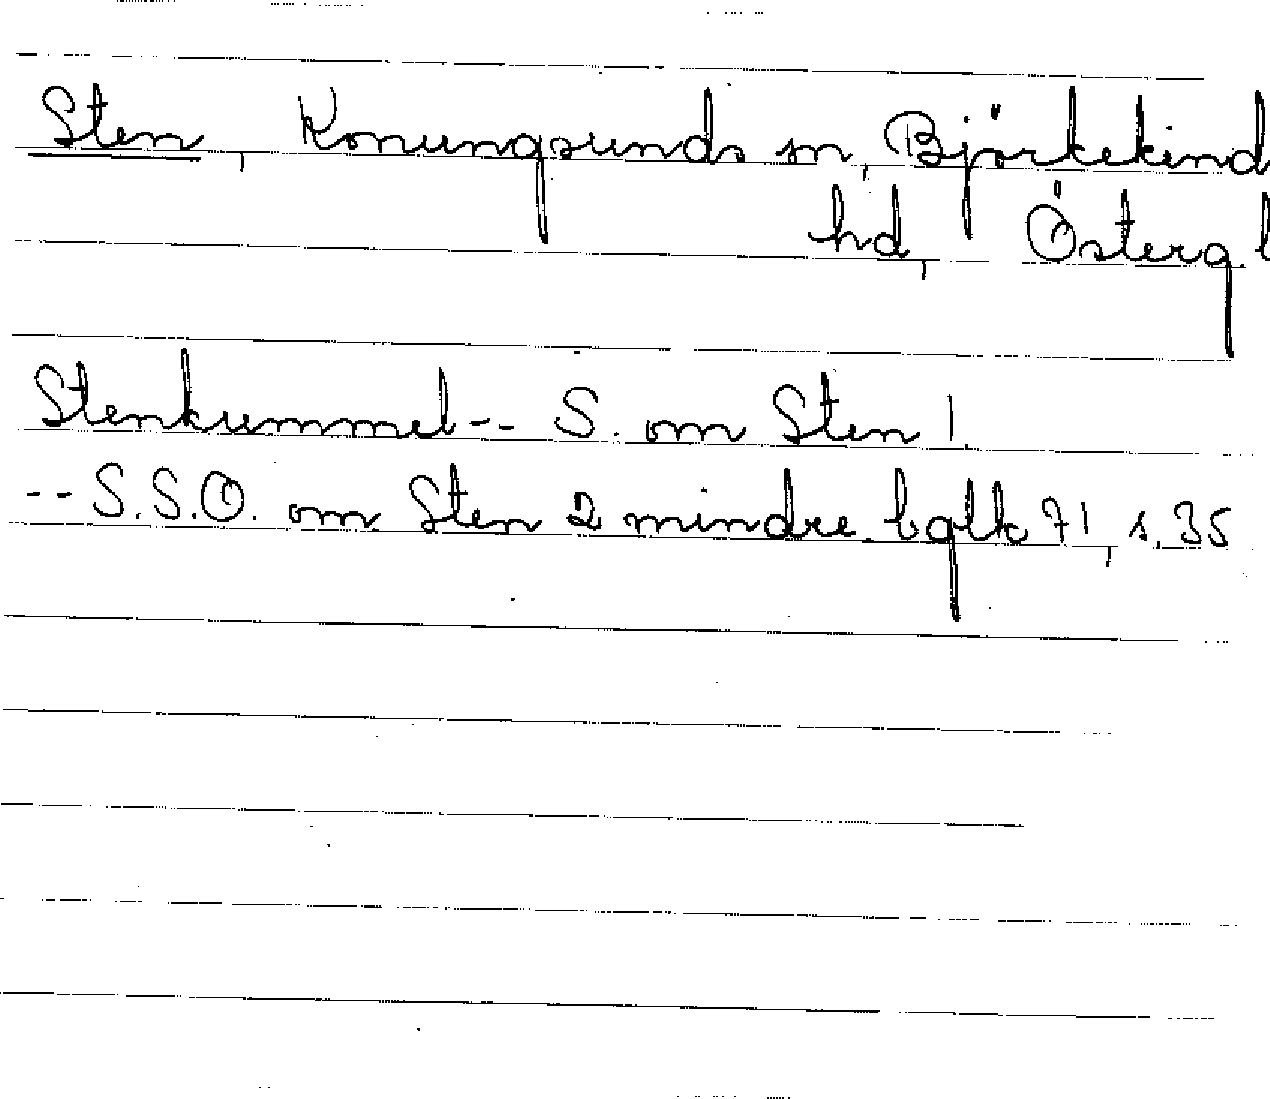 Sten, Konungsunds sn, Björkekind
hd, Österg. l
Stenkummel -- S. om Sten 1.
-- S.S.O. om Sten 2 mindre. bglk 71, s. 35